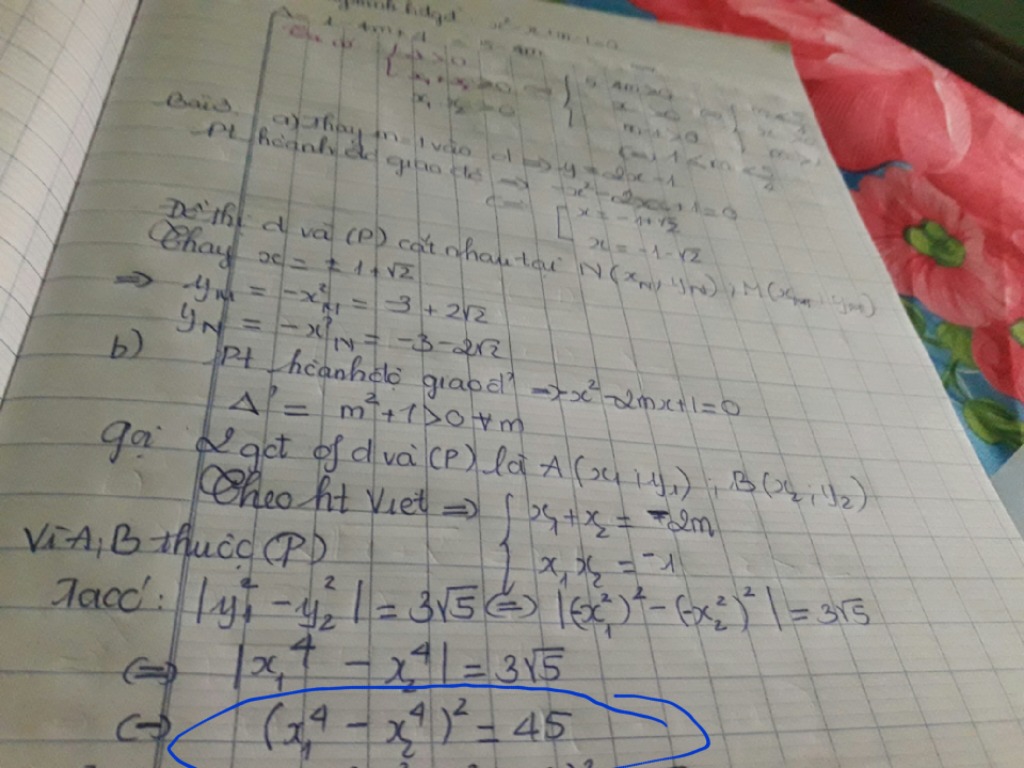 x² - x + m - 1 = 0
1 - 4m + 4 = 5 - 4m
x₁ x₂ > 0
Bài 3
a) Thay m = 1 vào d => y = 2x - 1
Pt hoành độ giao đ' => -x² - 2x + 1 = 0
<=> [ x = -1 + √2
x = -1 - √2
Đồ thị d và (P) cắt nhau tại N(x_N, y_N), M(x_M, y_M)
Thay x = ± 1 + √2
=> y_M = -x²_M = -3 + 2√2
y_N = -x²_N = -3 - 2√2
b) Pt hoành độ giao đ' => -x² - 2mx + 1 = 0
Δ' = m² + 1 > 0 ∀ m
Gọi 2 gđt of d và (P) là A(x₁; y₁), B(x₂; y₂)
Theo ht Viet => { x₁ + x₂ = -2m
x₁ x₂ = -1
Vì A, B thuộc (P)
Ta có: |y₁² - y₂²| = 3√5 <=> |(-x₁²)² - (-x₂²)²| = 3√5
<=> |x₁⁴ - x₂⁴| = 3√5
<=> (x₁⁴ - x₂⁴)² = 45